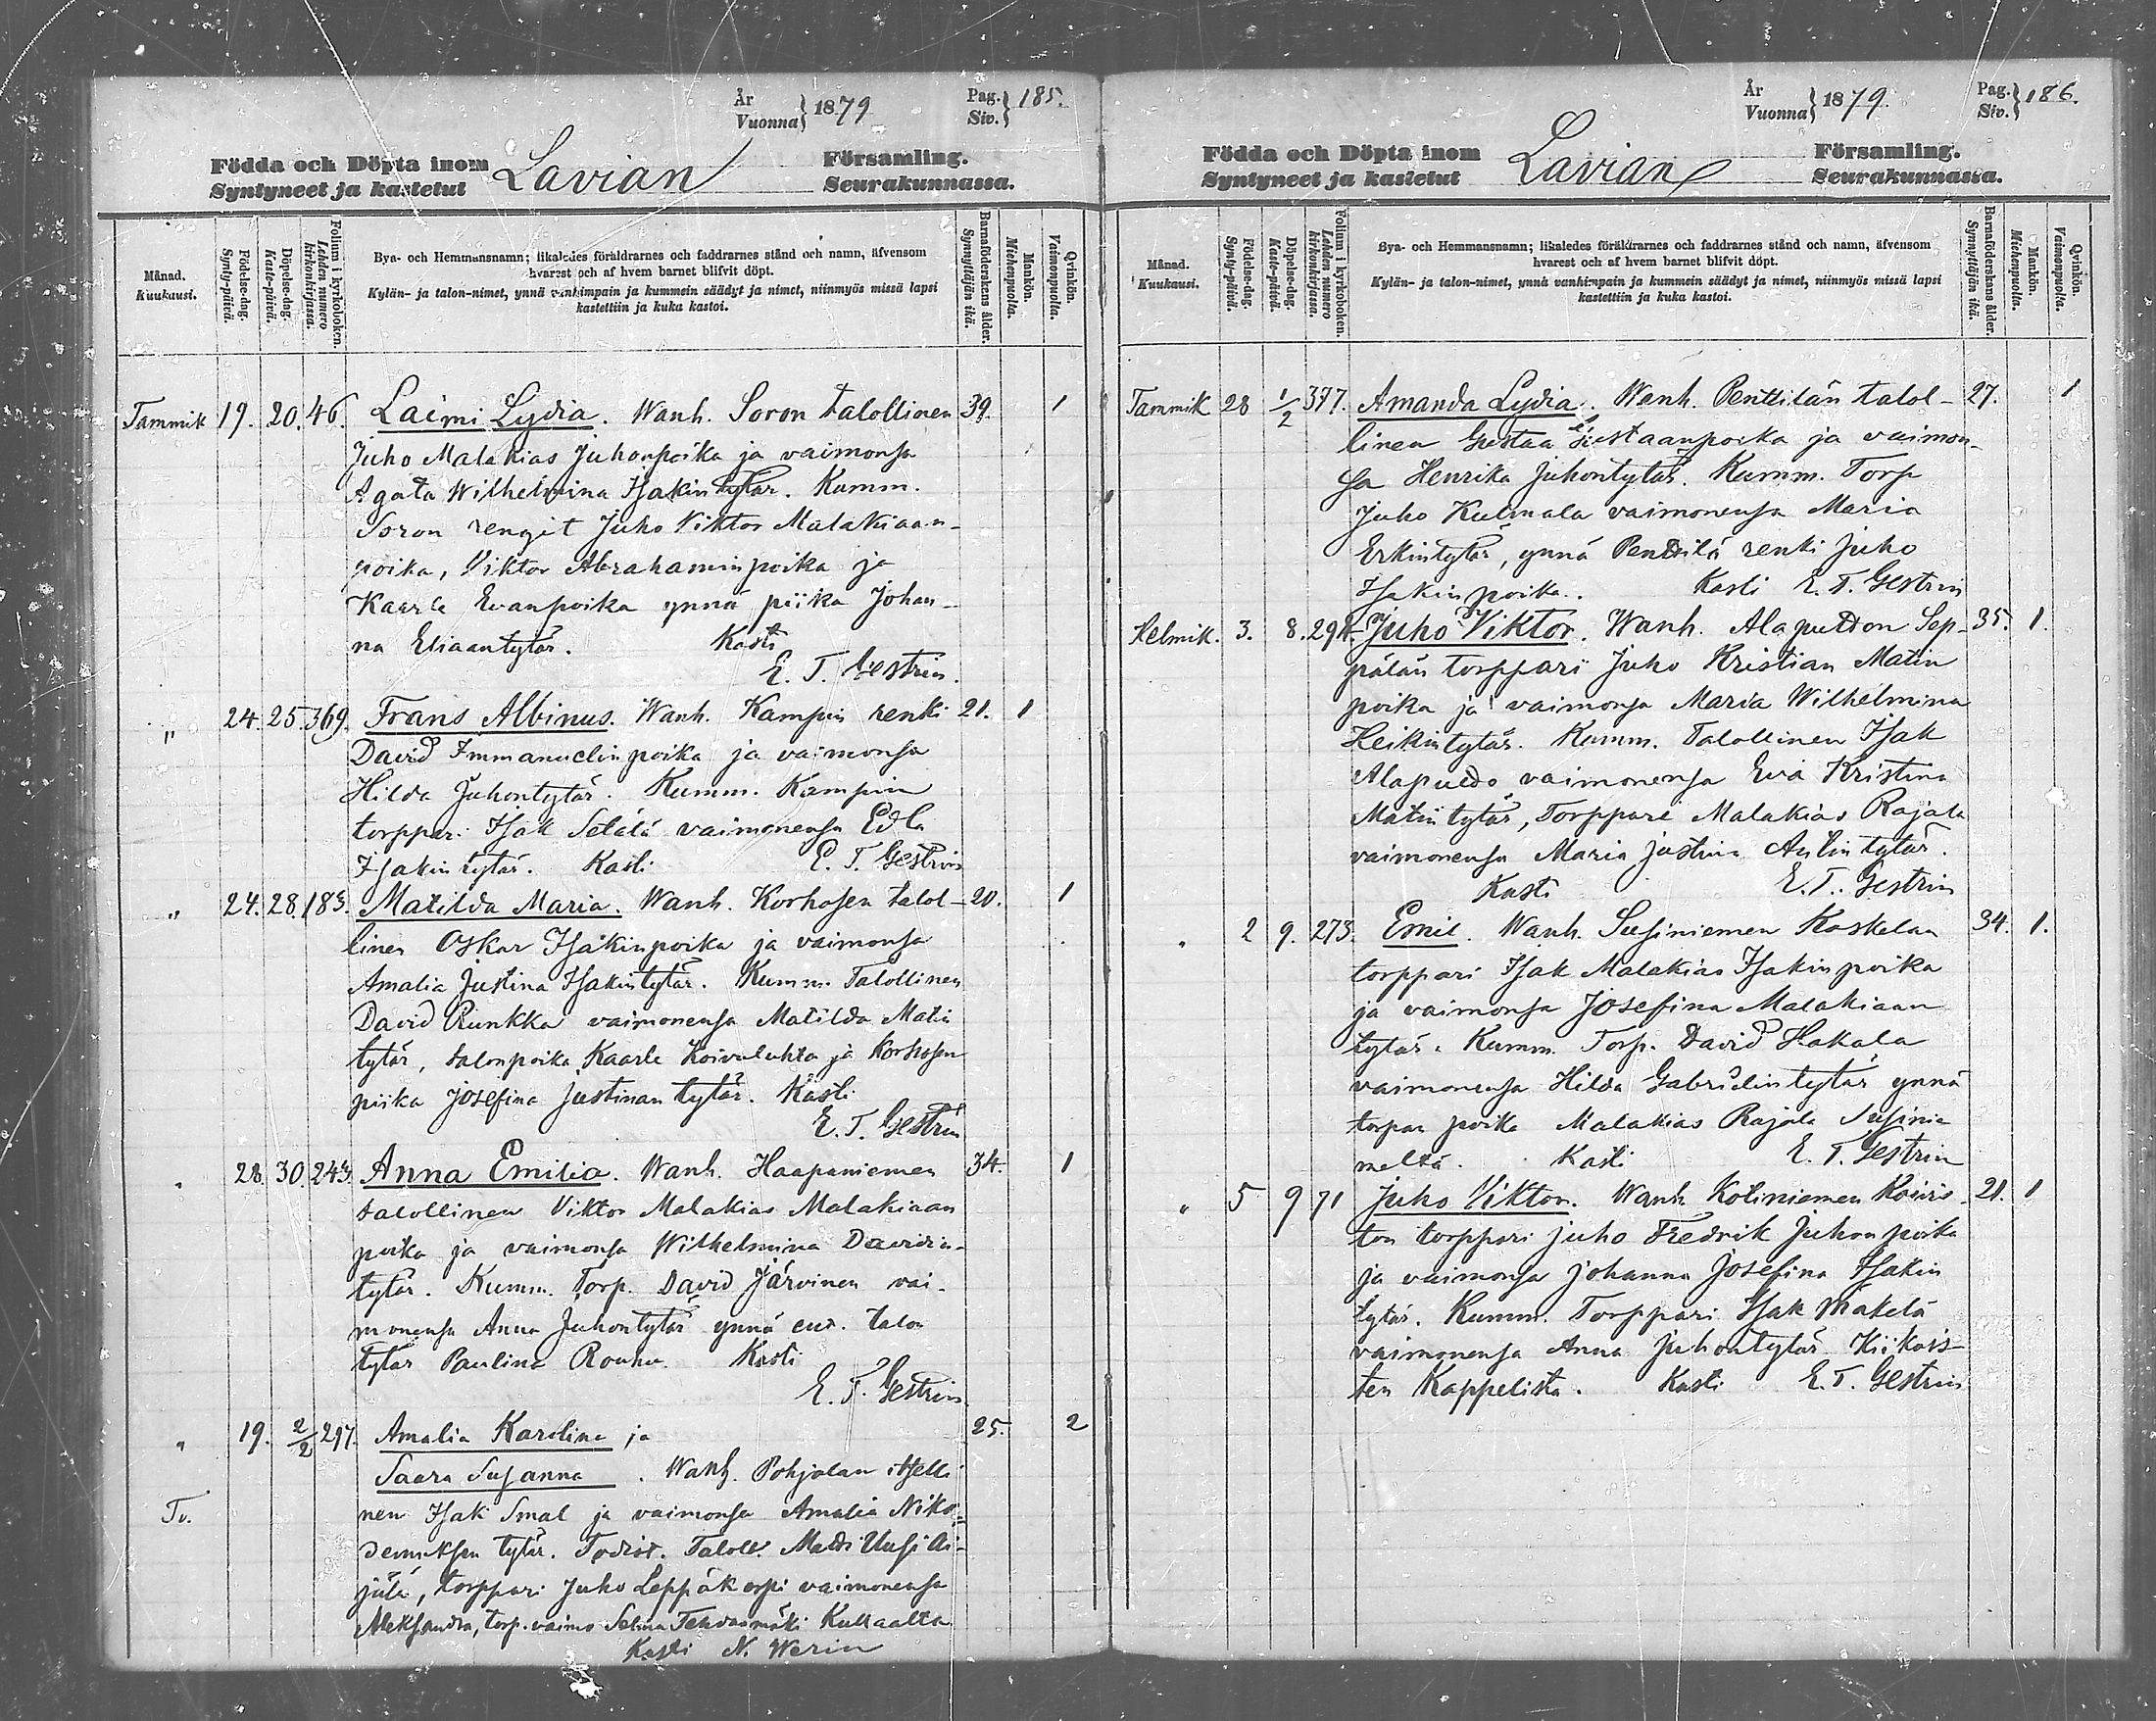 År
Vuonna } 1879
Pag.
Siv. } 185.
Födda och Döpta inom
Syntyneet ja kastetut
Lavian
Församling.
Seurakunnassa.
Månad.
Kuukausi.
Födelse-dag.
Synty-päivä.
Döpelse-dag.
Kaste-päivä.
Folium i kyrkoboken.
Lehden numero
kirkonkirjassa.
Bya- och Hemmansnamn; likaledes föräldrarnes och faddrarnes stånd och namn, äfvensom
hvarest och af hvem barnet blifvit döpt.
Kylän- ja talon-nimet, ynnä vanhimpain ja kummein säädyt ja nimet, niinmyös missä lapsi
kastettiin ja kuka kastoi.
Barnaföderskans ålder.
Synnyttäjän ikä.
Mankön.
Miehenpuolta.
Qvinkön.
Vaimonpuolta.
Tammik 19. 20. 46. Laimi Lydia. Wanh. Soron talollinen 39. 1
Juho Malakias Juhonpoika ja vaimonsa
Agata Wilhelmina Isakintytär. Kumm.
Soron rengit Juho Viktor Malakiaan-
poika, Viktor Abrahaminpoika ja
Kaarle Evanpoika ynnä piika Johan-
na Eliaantytär. Kasti
E. T. Gestrin.
" 24. 25 369. Frans Albinus. Wanh. Kampin renki 21. 1
David Immanuelinpoika ja vaimonsa
Hilda Juhontytär. Kumm. Kampin
torppari Isak Setälä vaimonensa Edla
Isakintytär. Kasti E. T. Gestrin
" 24. 28. 183. Matilda Maria. Wanh. Korhosen talol- 20. 1
linen Oskar Isakinpoika ja vaimonsa
Amalia Justina Isakintytär. Kumm. Talollinen
David Runkka vaimonensa Matilda Matin
tytär, talonpoika Kaarle Koivulahta ja Korhosen
piika Josefina Justinantytär. Kasti
E. T. Gestrin
" 28. 30. 243. Anna Emilia. Wanh. Haapaniemen 34. 1
talollinen Viktor Malakias Malakiaan
poika ja vaimonsa Wilhelmina Davidin-
tytär. Kumm. Torp. David Järvinen vai-
monensa Anna Juhontytär ynnä ent. talon
tytär Paulina Rouhu. Kasti
E. T. Gestrin.
" 19. 2/2 297. Amalia Karolina ja 25. 2
Saara Susanna. Wanh. Pohjalan itselli
nen Isak Smal ja vaimonsa Amalia Niko-
demuksen tytär. Todist. Taloll. Matti Uusi Ai-
jälä, torppari Juho Leppäkorpi vaimonensa
Aleksandra, torp. vaimo Selma Tehdasmäki Kullaalta
Kasti N. Werin
Tv.
År
Vuonna } 1879.
Pag.
Siv. } 186.
Födda och Döpta inom
Syntyneet ja kastetut
Lavian
Församling.
Seurakunnassa.
Månad.
Kuukausi.
Födelse-dag.
Synty-päivä.
Döpelse-dag.
Kaste-päivä.
Folium i kyrkoboken.
Lehden numero
kirkonkirjassa.
Bya- och Hemmansnamn; likaledes föräldrarnes och faddrarnes stånd och namn, äfvensom
hvarest och af hvem barnet blifvit döpt.
Kylän- ja talon-nimet, ynnä vanhimpain ja kummein säädyt ja nimet, niinmyös missä lapsi
kastettiin ja kuka kastoi.
Barnaföderskans ålder.
Synnyttäjän ikä.
Mankön.
Miehenpuolta.
Qvinkön.
Vaimonpuolta.
Tammik 28 1/2 377. Amanda Lydia. Wanh. Penttilän talol- 27. 1
linen Gustaa Gustaanpoika ja vaimon-
sa Henrika Juhontytär. Kumm. Torp
Juho Kulmala vaimonensa Maria
Erkintytär, ynnä Penttilä renki Juho
Isakinpoika. Kasti E. T. Gestrin
Helmik. 3. 8. 294. Juho Viktor. Wanh. Alaputton Sep- 35. 1.
pälän torppari Juho Kristian Matin
poika ja vaimonsa Maria Wilhelmina
Heikintytär. Kumm. Talollinen Isak
vaimonensa Eva Kristina
Matintytär, Torppari Malakias Rajala
vaimonensa Maria Justina Antintytär.
Kasti E. T. Gestrin
" 2 9. 273. Emil. Wanh. Susiniemen Koskelan 34. 1.
torppari Isak Malakias Isakinpoika
ja vaimonsa Josefina Malakiaan
tytär. Kumm. Torp. David Hakala
vaimonensa Hilda Gabrielintytär ynnä
torpan poika Malakias Rajala Susinie
meltä. Kasti E. T. Gestrin
" 5 9 71 Juho Viktor. Wanh. Kotiniemen Koivis- 21. 1
ton torppari Juho Fredrik Juhonpoika
ja vaimonsa Johanna Josefina Isakin
tytär. Kumm. Torppari Isak Mäkelä
vaimonensa Anna Juhontytär Kiikois-
ten Kappelista. Kasti E. T. Gestrin